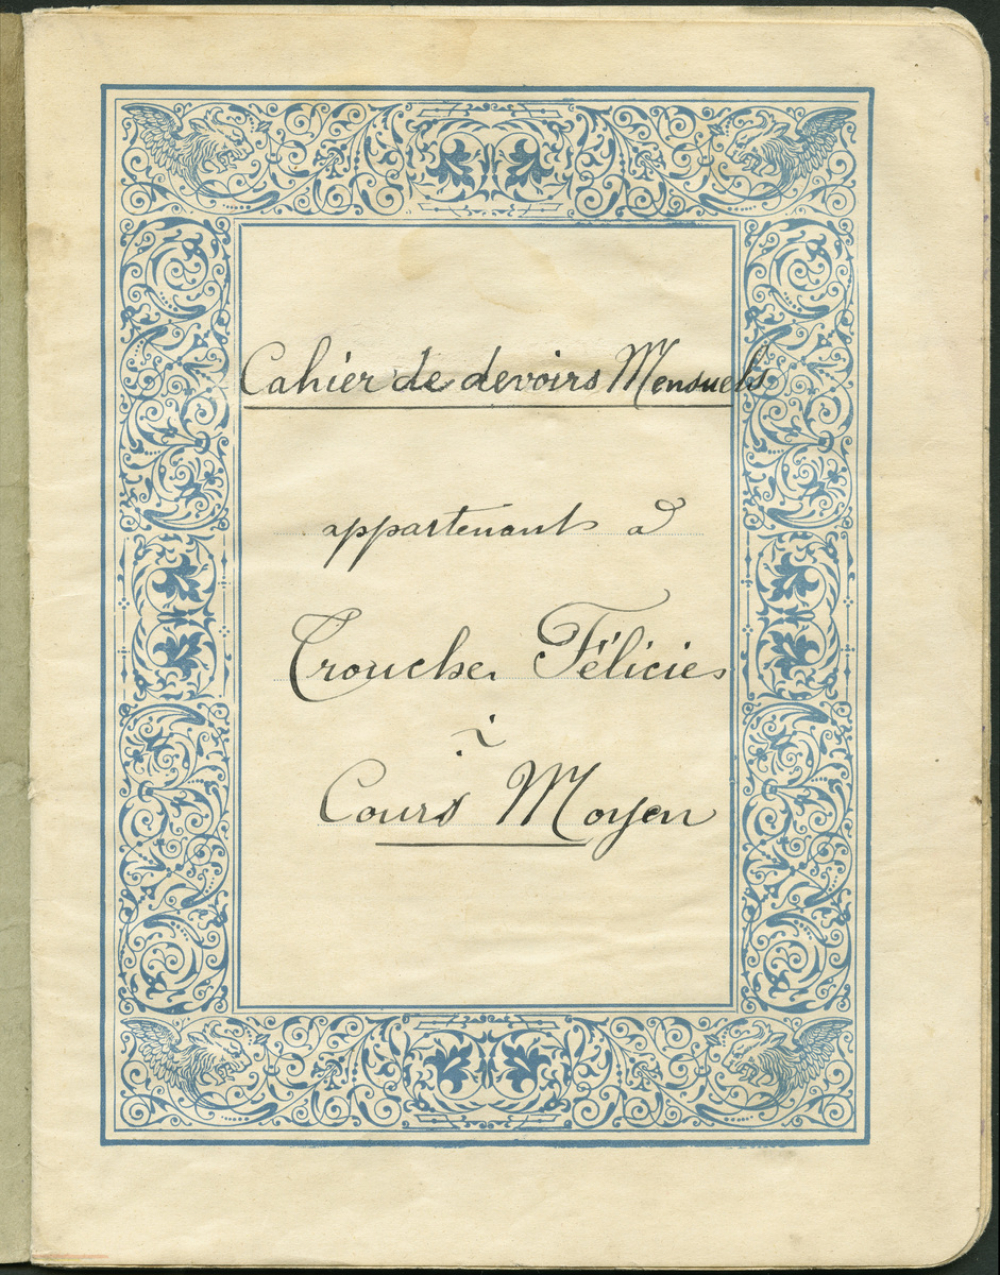 Cahier de devoirs Mensuels
appartenant à
Trouche Félicie
Cours Moyen